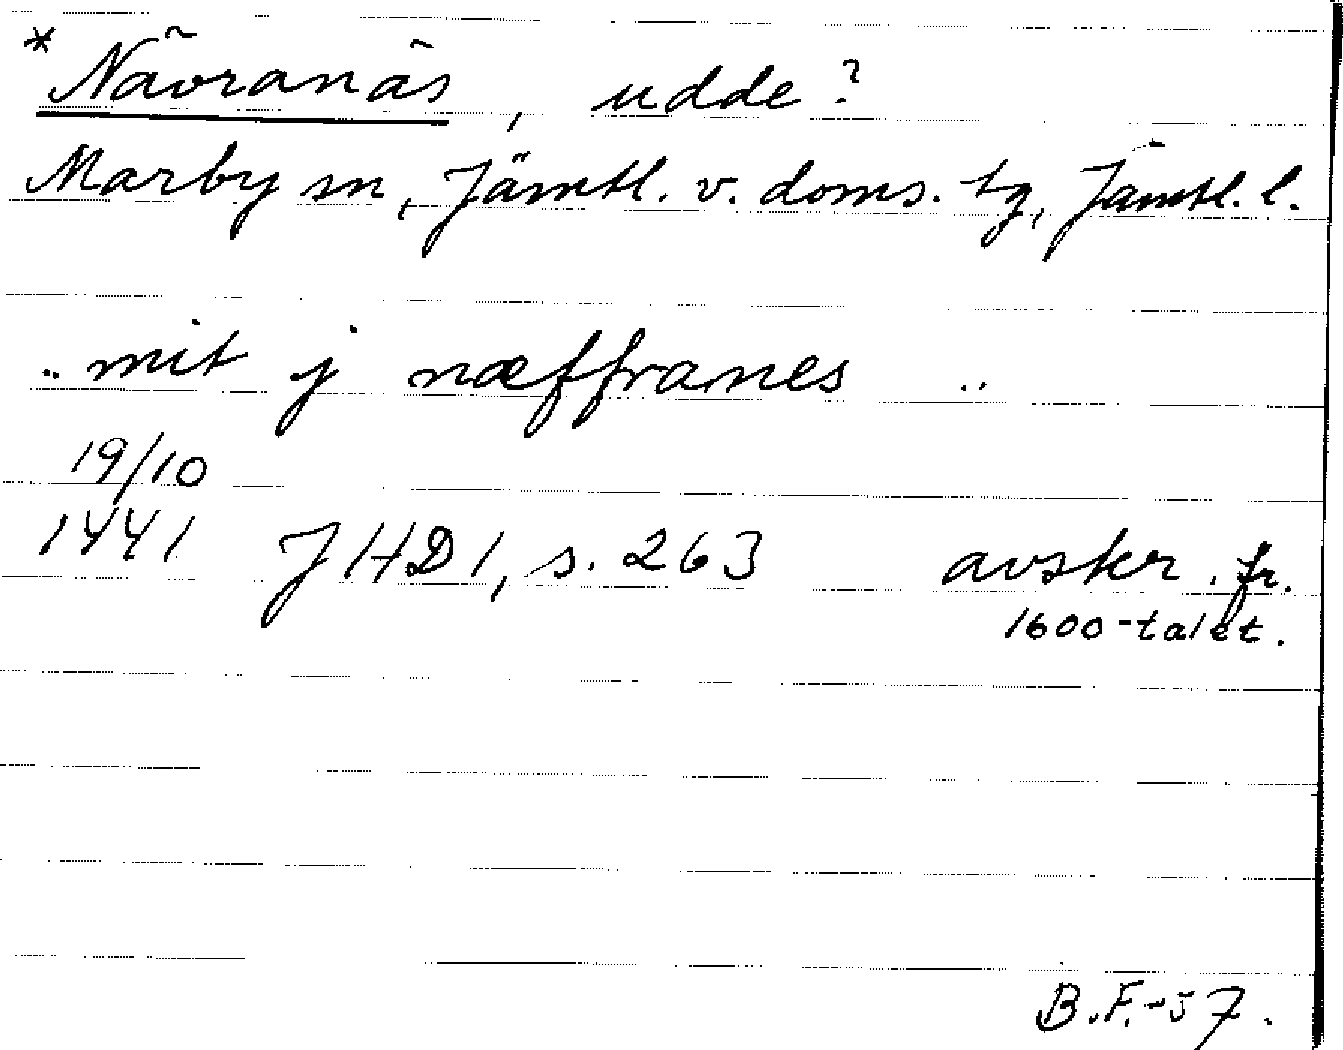 * Nävranäs, udde?
Marby sn, Jämtl. v. doms. tg, Jämtl. l.
.. mit j næfframes ..
19/10
1441 JHD 1, s. 263 avskr. fr.
1600-talet.
B.F.-57.